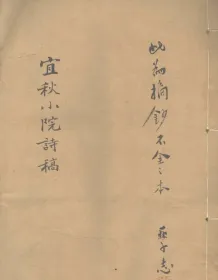 此摘鈔不全之本
志
宜秋小院詩稿